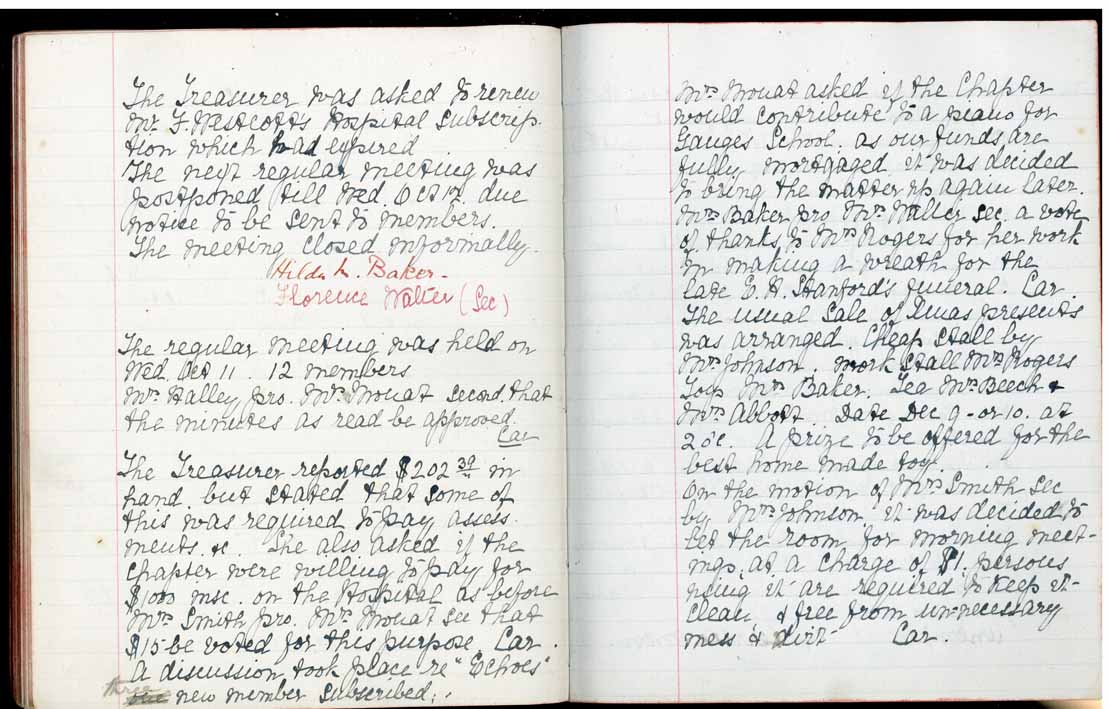 The Treasurer was asked to renew
Mr F. Westcott's Hospital Subscrip-
tion which had expired
The next regular meeting was
postponed till Wed. Oct 11th. due
notice to be sent to members.
The meeting closed informally.
Hilda M. Baker.
Florence Walter (Sec)
The regular meeting was held on
Wed. Oct 11. 12 members
Mrs Halley pro. Mrs Mouat second. that
the minutes as read be approved.
Car
The Treasurer reported $202 39 in
hand. but stated that some of
this was required to pay assess-
ments. &c. She also asked if the
Chapter were willing to pay for
$1000 insc. on the Hospital as before
Mrs Smith pro. Mrs Mouat sec that
$15 be voted for this purpose Car.
A discussion took place re "Echoes"
three new member subscribed.
Mrs Mouat asked if the Chapter
would contribute to a piano for
Ganges School. as our funds are
fully mortgaged it was decided
to bring the matter up again later.
Mrs Baker pro Mrs Walter sec. a vote
of thanks to Mrs Rogers for her work
in making a wreath for the
late E. H. Stanford's funeral. Car.
The usual Sale of Xmas presents
was arranged. Cheap Stall by
Mrs Johnson. Work Stall Mrs Rogers
Toys Mrs Baker. Tea Mrs Beech &
Mrs Abbott. Date Dec 9 - or 10. at
2 oc. A prize to be offered for the
best home made toy.
On the motion of Mrs Smith sec
by Mrs Johnson. it was decided to
let the room for morning meet-
ings, at a charge of $1. persons
using it are required to keep it
clean & free from un-necessary
mess & dirt Car.